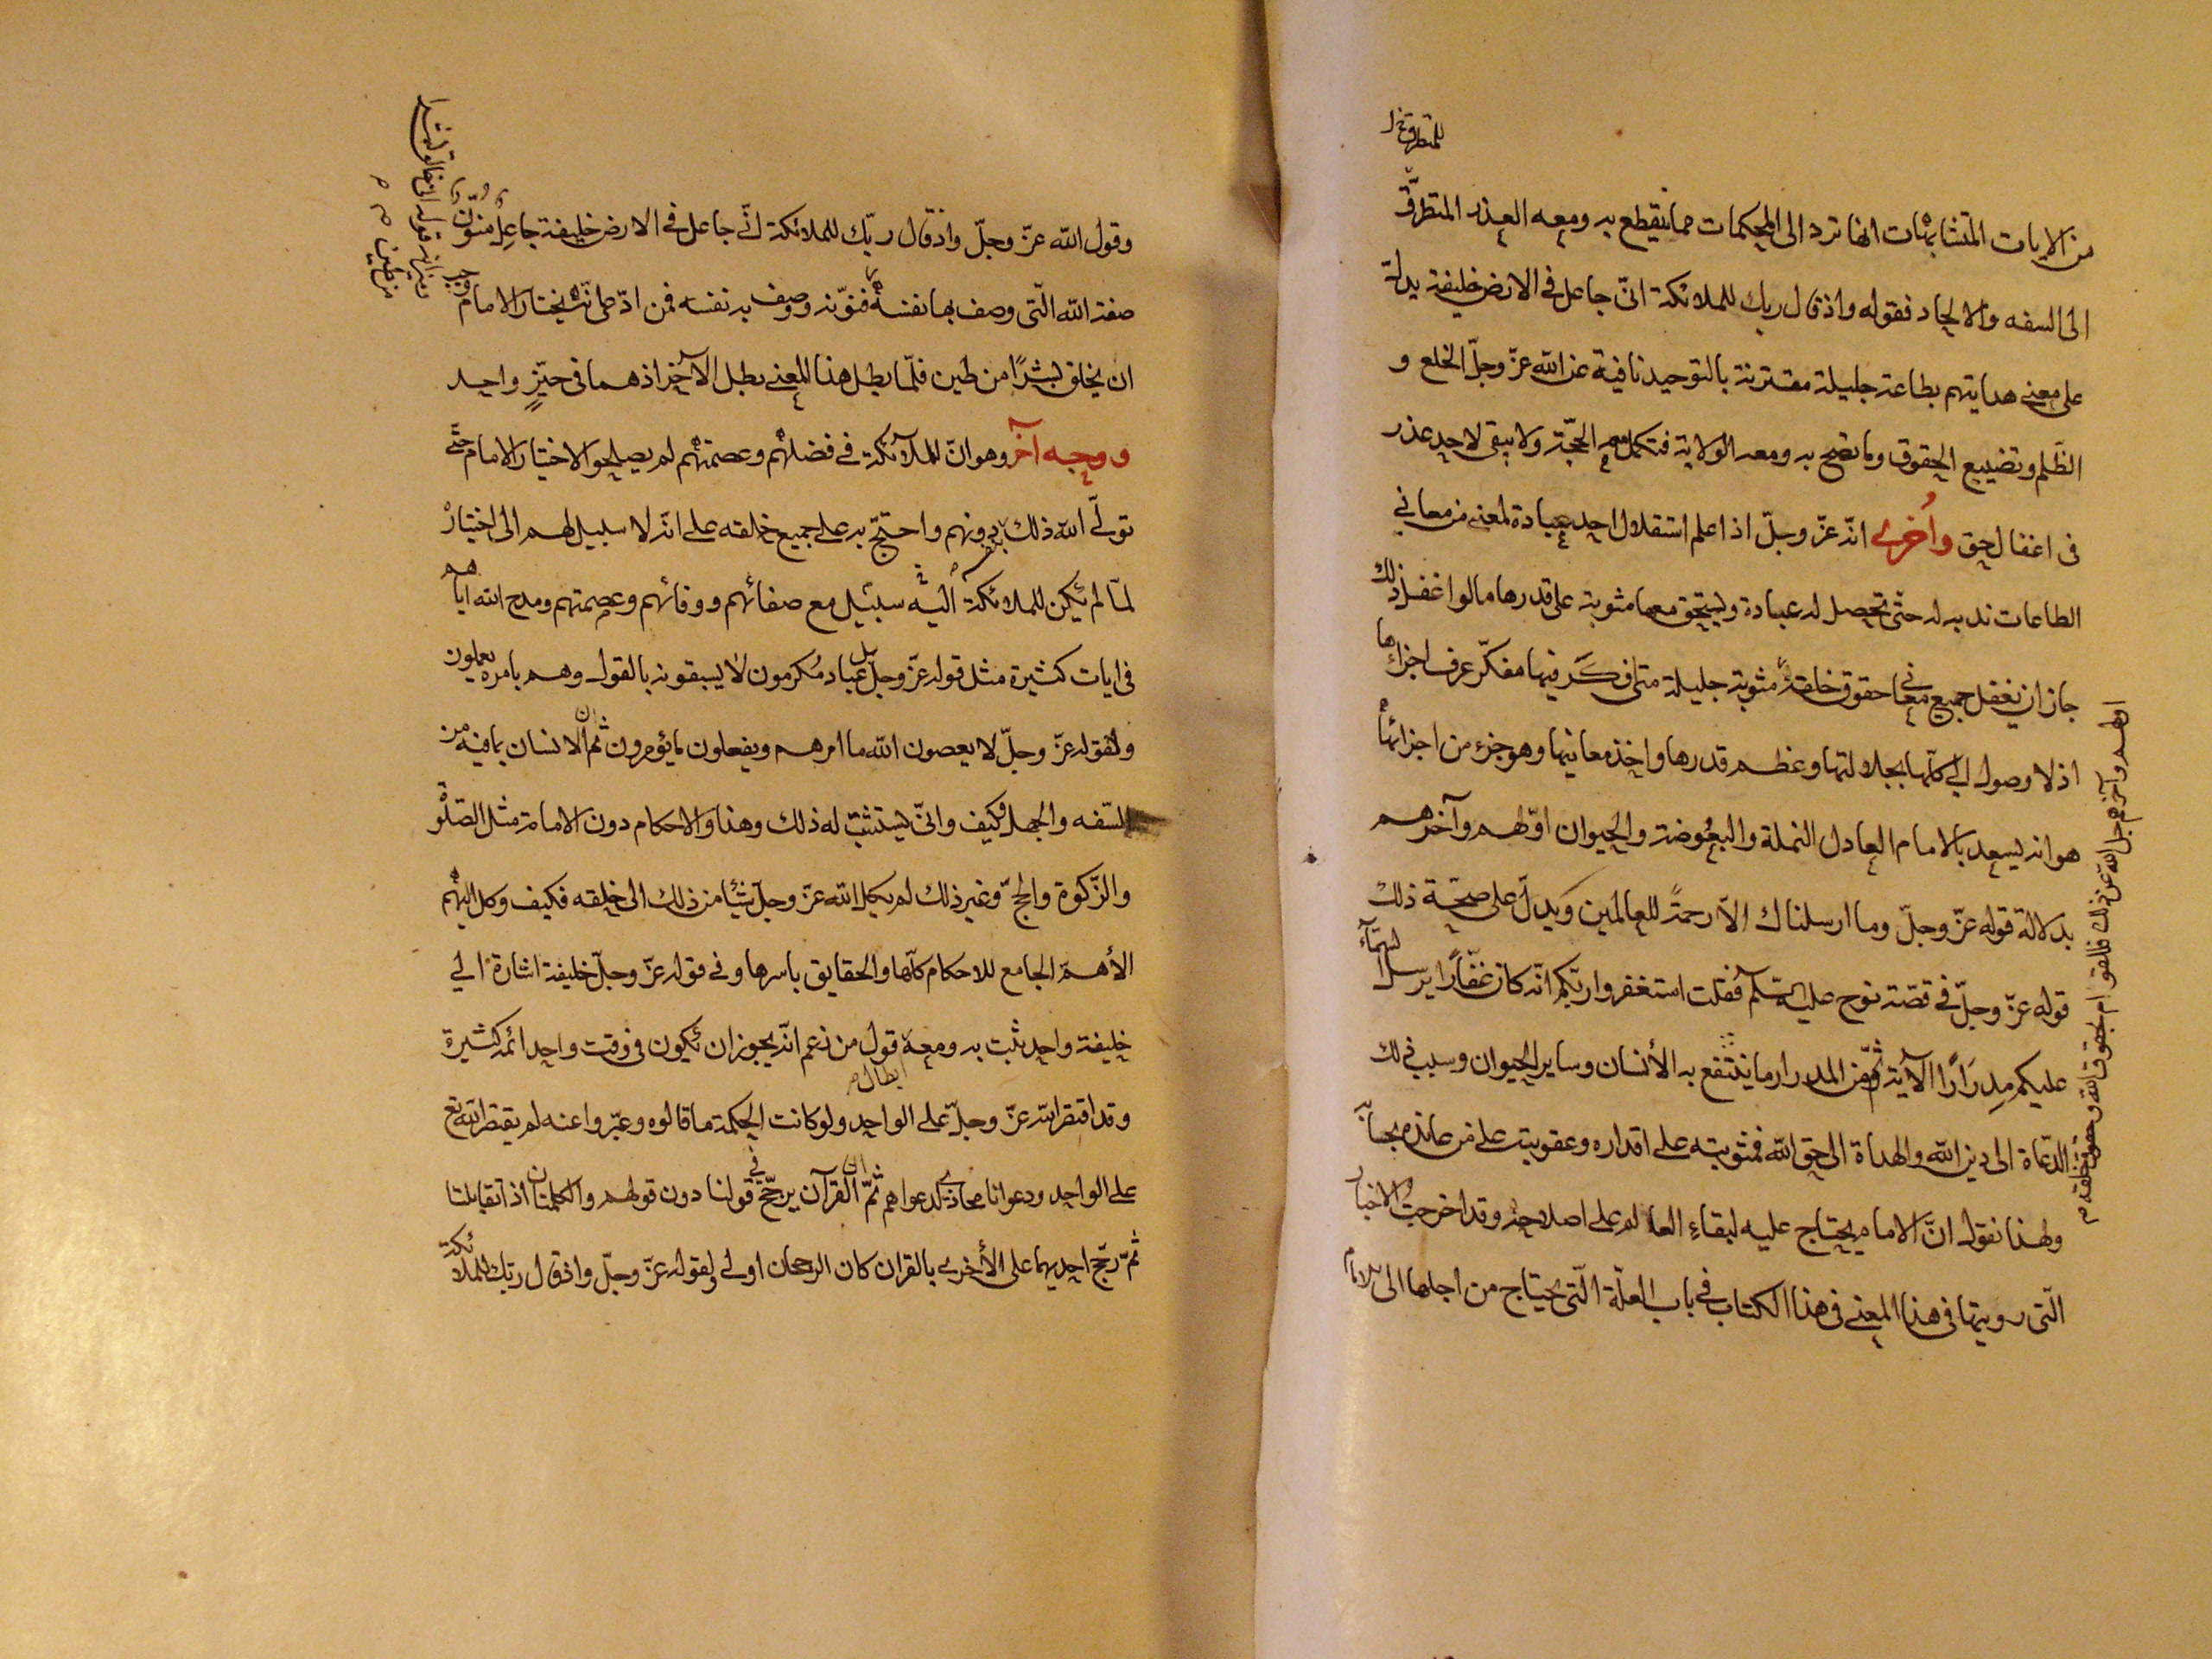 للمتطرق خ ل
من الايات المتشابهات انها ترد الى المحكمات مما يقطع به ومعه العذر المتطرق
الى السفه والالحاد فقوله واذ قال ربك للملائكة انّى جاعل فى الارض خليفة يدلّ
على معنى هدايتهم بطاعة جليلة مقترنة بالتوحيد نافية عن الله عزّ وجلّ الخلع و
الظّلم وتضييع الحقوق وما تصحّ به ومعه الولاية فتكمل معه الحجّة ولا يبقى لاحد عذر
فى اغفال حق واُخرى انّه عزّ وجلّ اذا علم استقلال احد عبادة لمعنى من معاني
الطاعات ندبه له حتّى تحصل له عبادة ويستحق معها مثوبة على قدرها ما لو اغفل ذلك
جاز ان يغفل جميع معاني حقوق خلقه مثوبة جليلة متى فكّر فيها مفكّر عرف اجزاءها
اذ لا وصول الى كلّها بجلالتها وعظم قدرها واخذ معانيها وهو جزء من اجزائها
هو انه يسعد بالامام العادل النملة والبعوضة والحيوان اوّلهم وآخرهم
بدلالة قوله عزّ وجلّ وما ارسلناك الاّ رحمةً للعالمين ويدلّ على صحّة ذلك
قوله عزّ وجلّ فى قصّة نوح عليه السّلم فقلت استغفروا ربّكم انّه كان غفّارًا يرسل السّمآء
عليكم مِدرَارًا الآية ثمّ من المدرار ما ينتفع به الأنسان وساير الحيوان وسبب ذلك
الدّعاة الى دين الله والهداة الى حق الله فمثوبته على اقداره وعقوبته على من عانده بحسابه
ولهذا نقول انّ الامام يحتاج عليه لبقاءِ العالم على اصلاحه وقد اخرجت الاخبار
الّتى رويتها فى هذا المعنى فى هذا الكتاب فى باب العلّة الّتى يحتاج من اجلها الى الامام
وقول الله عزّ وجلّ واذ قال ربّك للملائكة انّى جاعل فى الارض خليفة جاعِلٌ منوّن
صفة الله الّتى وصف بها نفسه فنوّنه ووصف به نفسه فمن ادّعى انّه يختار الامام وجب
ان يخلق بشرًا من طين فلمّا بطل هذا المعنى بطل الآخر اذ هما فى حيّزٍ واحد
ووجه آخر وهو انّ الملآئكة فى فضلهم وعصمتهم لم يصلحوا لاختيار الامام حتّى
تولّى الله ذلك بنفسه دونهم واحتجّ به على جميع خلقه على انّه لا سبيل لهم الى اختياره
لمّا لم يكن للملائكة اليه سبيل مع صفائهم ووفائهم وعصمتهم ومدح الله اياهم
فى ايات كثيرة مثل قوله عزّ وجلّ بل عباد مُكرمون لا يسبقونه بالقول وهم بامره يعملون
ولقوله عزّ وجلّ لا يعصون الله ما امرهم ويفعلون ما يؤمرون ثم ان الانسان بما فيه من
السّفه والجهل فكيف وانّى يستتبّ له ذلك وهذا والاحكام دون الامامة مثل الصّلوة
والزّكوة والحجّ وغير ذلك لم يكل الله عزّ وجلّ شيئا من ذلك الى خلقه فكيف وكل اليهم
الأهمّ الجامع للاحكام كلّها والحقايق باسرها وفى قوله عزّ وجلّ خليفة اشارة الى
خليفة واحد ثبت به ومعه ابطال قول من زعم انّه يجوز ان تكون فى وقت واحد ائمّة كثيرة
وقد اقتصر الله عزّ وجلّ على الواحد ولو كانت الحكمة ما قالوه وعبّروا عنه لم يقتصر الله تع
على الواحد ودعوانا محاذى لدعواهم ثمّ ان القرآن يرجّح فى قولنا دون قولهم والكلمتان اذا تقابلتا
ثمّ رجّح احديهما على الأخرى بالقران كان الرجحان اولى ولقوله عزّ وجلّ واذ قال ربّك للملائكة